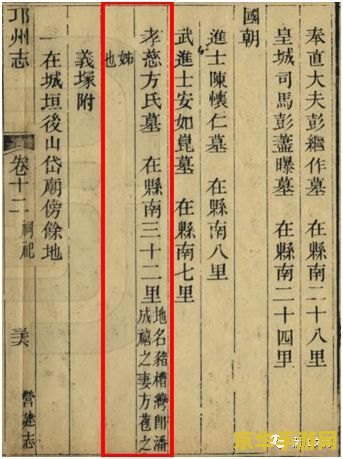 奉直大夫彭繼作墓　在縣南二十八里
皇城司馬彭藎曝墓　在縣南二十四里
國朝
進士陳懷仁墓　在縣南八里
武進士安如崑墓　在縣南七里
孝慈方氏墓　在縣南三十二里
地名豬槽灣卽潘
成禧之妻方苞之
姊
也
義塚附
一在城垣後山岱廟傍餘地
邛州志
卷十二
祠祀
营建志